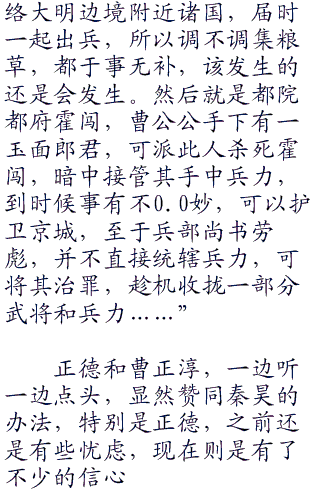 络大明边境附近诸国，届时
一起出兵，所以调不调集粮
草，都于事无补，该发生的
还是会发生。然后就是都院
都府霍闯，曹公公手下有一
玉面郎君，可派此人杀死霍
闯，暗中接管其手中兵力，
到时候事有不0.0妙，可以护
卫京城，至于兵部尚书劳
彪，并不直接统辖兵力，可
将其治罪，趁机收拢一部分
武将和兵力……”
正德和曹正淳，一边听
一边点头，显然赞同秦昊的
办法，特别是正德，之前还
是有些忧虑，现在则是有了
不少的信心